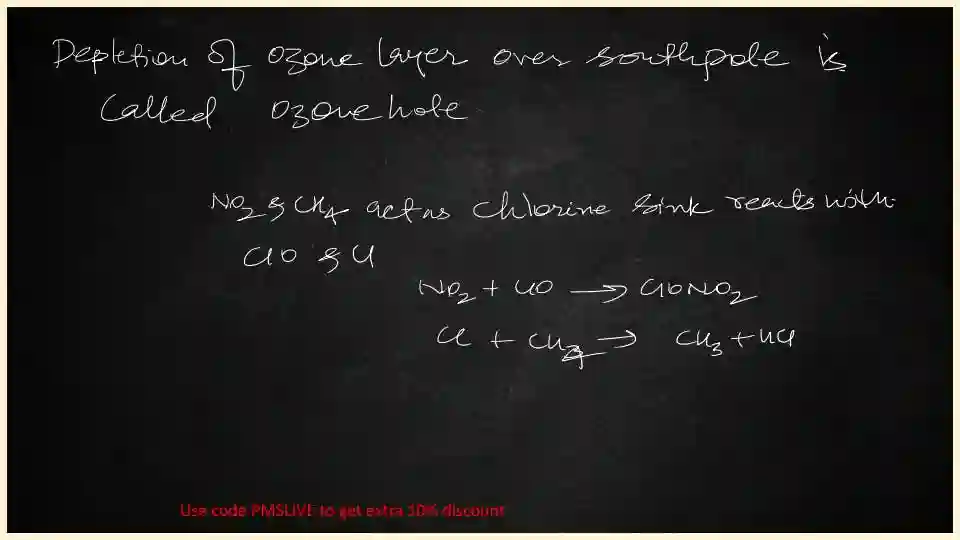 Depletion of ozone layer over southpole is
Called ozone hole
NO2 & CH4 act as chlorine sink reacts with
ClO & Cl
NO2 + ClO → ClONO2
Cl + CH4 → CH3 + HCl
Use code PMSLIVE to get extra 10% discount